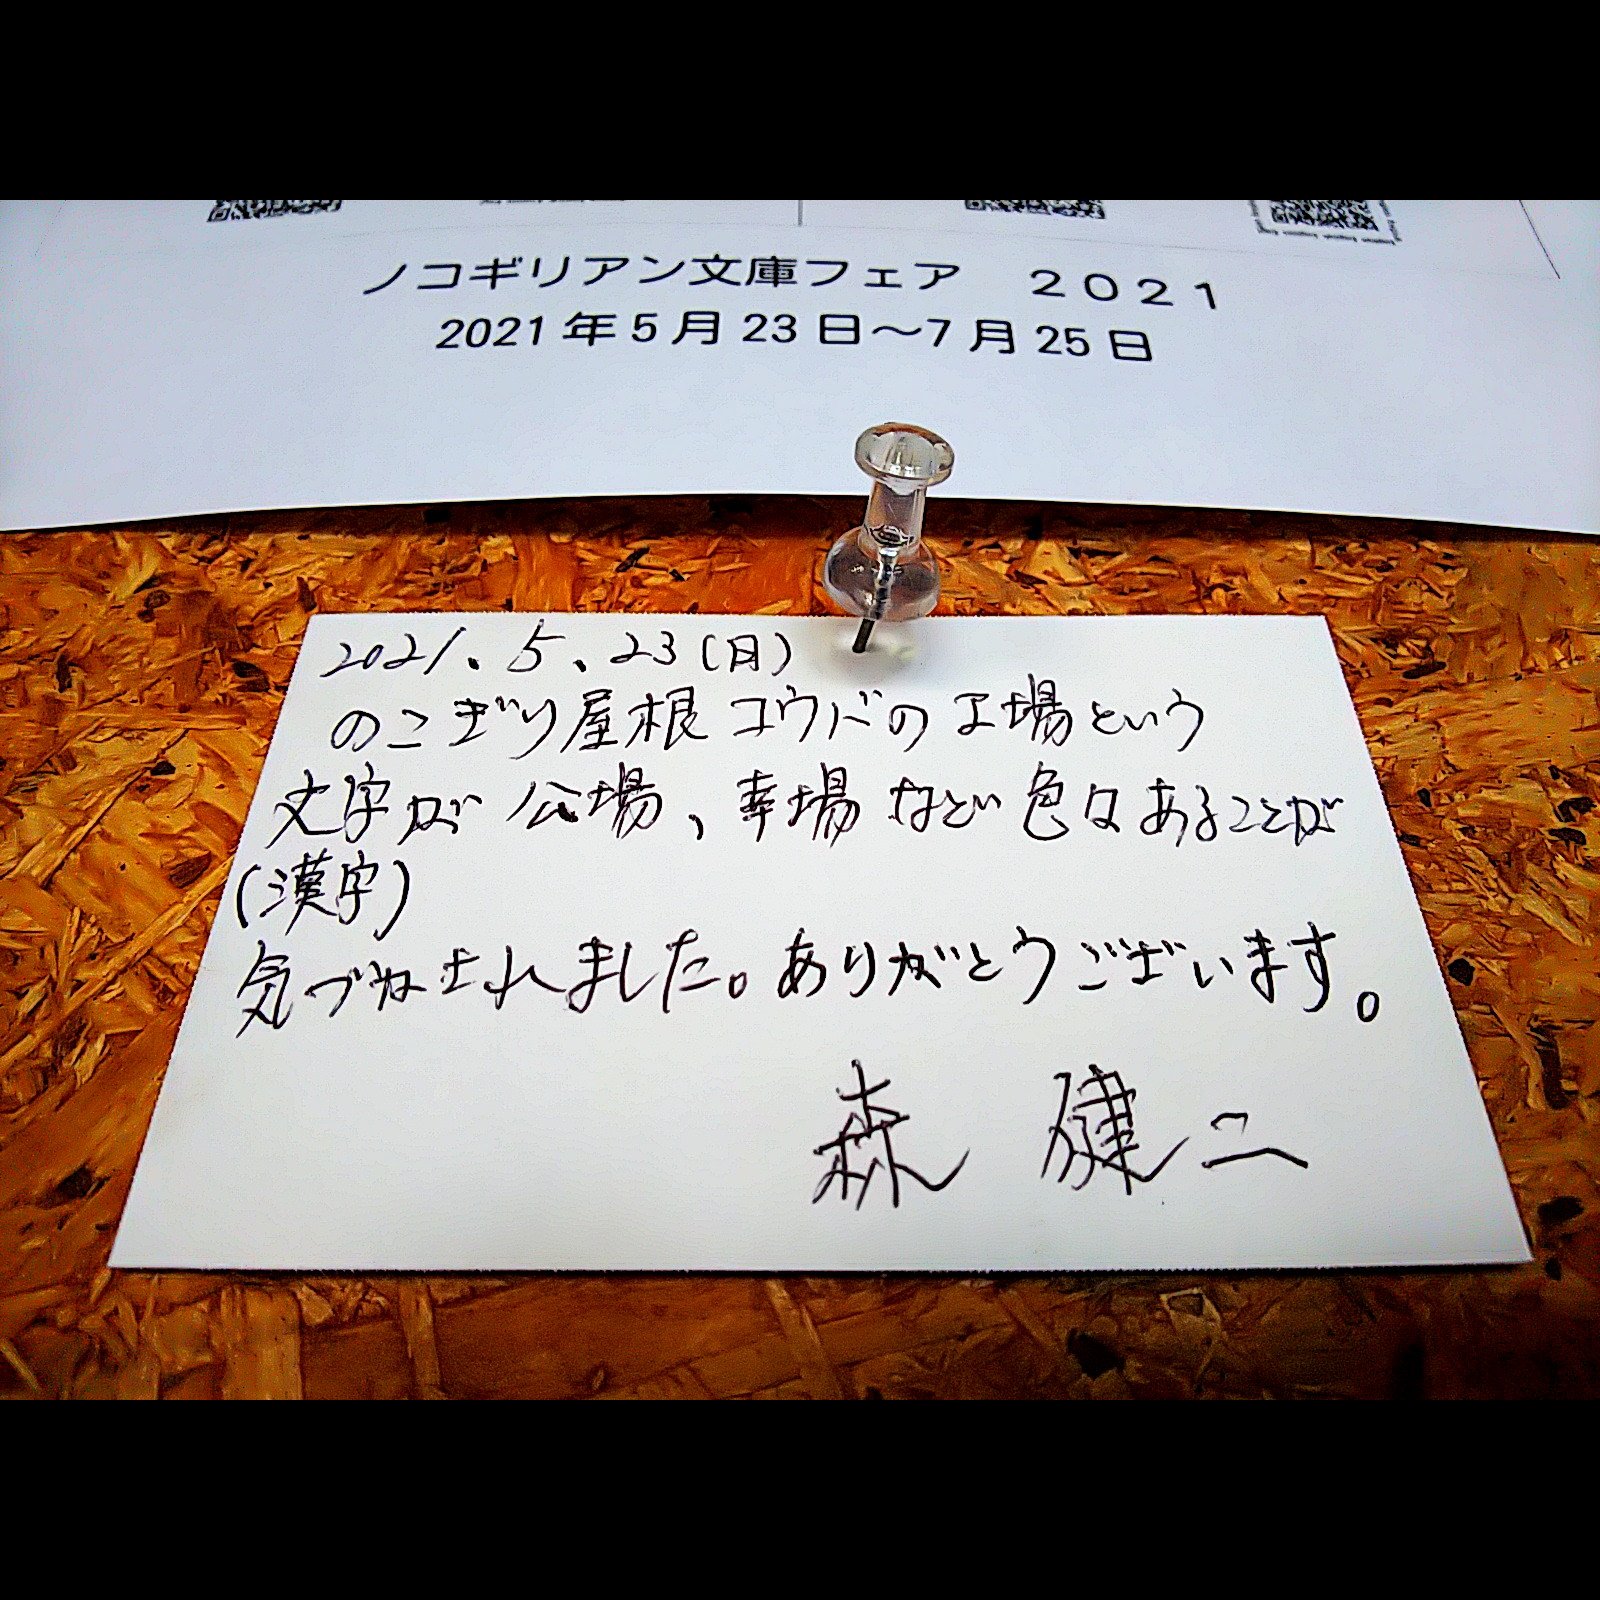 ノコギリアン文庫フェア　２０２１
2021 年 5 月 23 日～7 月 25 日
2021、5、23(日)
のこぎり屋根コウバの工場という
文字が 公場、幸場 など色々あることが
(漢字)
気づかされました。ありがとうございます。
森 健二